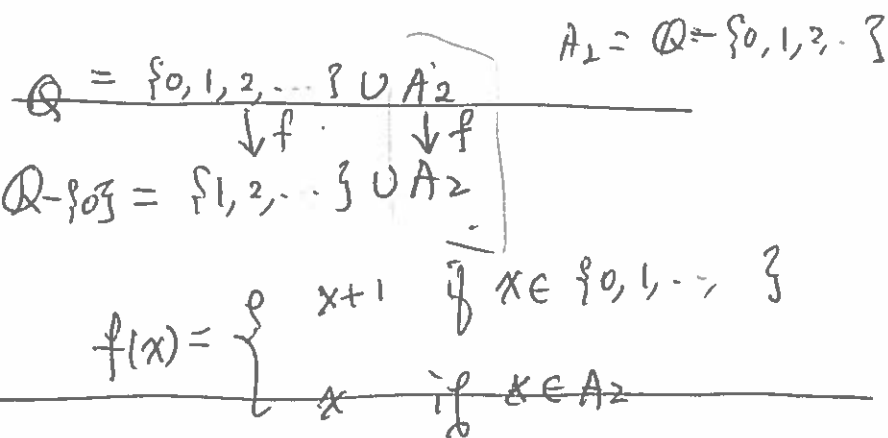 A₂ = Q - {0, 1, 2, .. }
Q = {0, 1, 2, ... } ∪ A₂
↓ f . ↓ f
Q-{0} = {1, 2, ... } ∪ A₂
f(x) = { x+1 if x ∈ {0, 1, .., }
x if x ∈ A₂